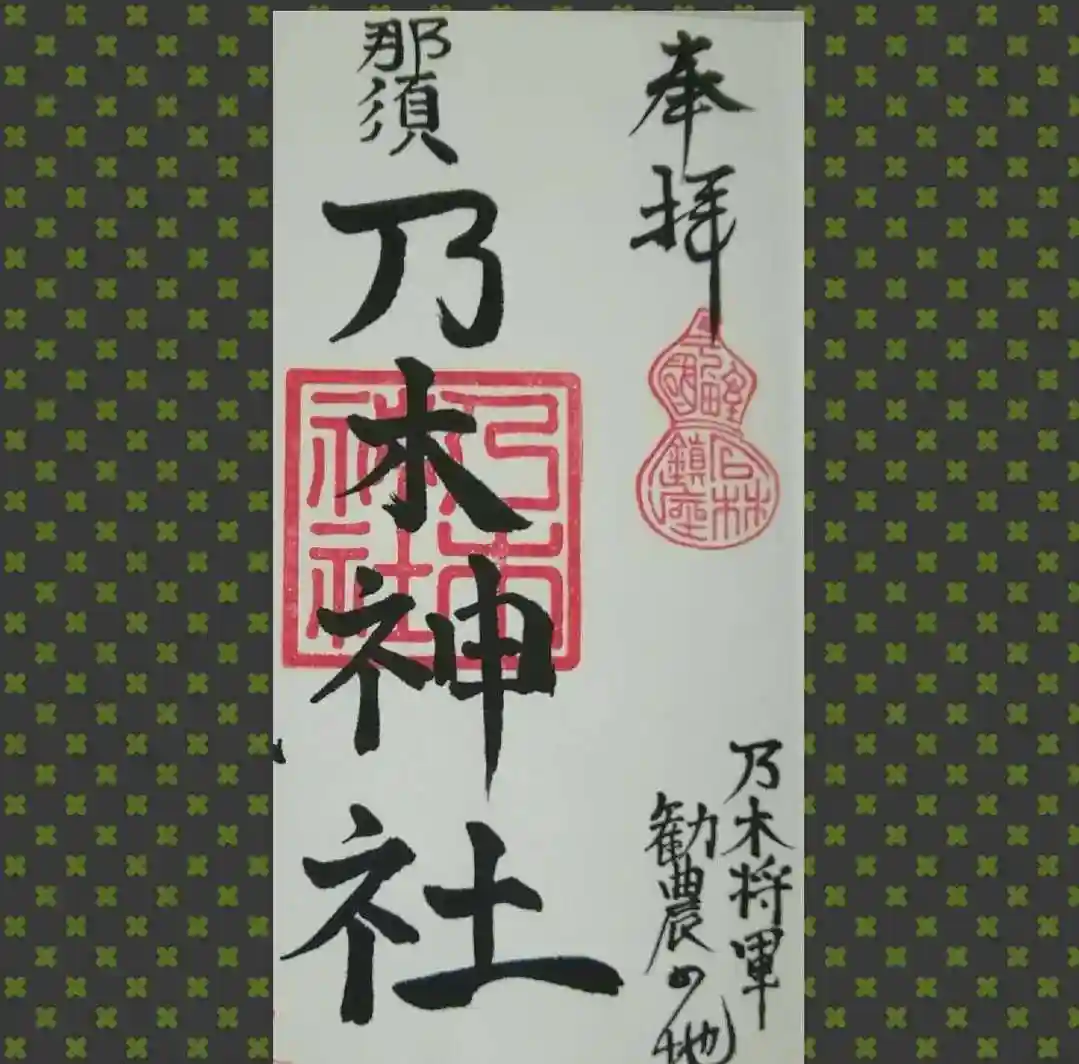 奉拝
石林
鎮座
乃木将軍
勧農の地
那須
乃木神社
乃木
神社